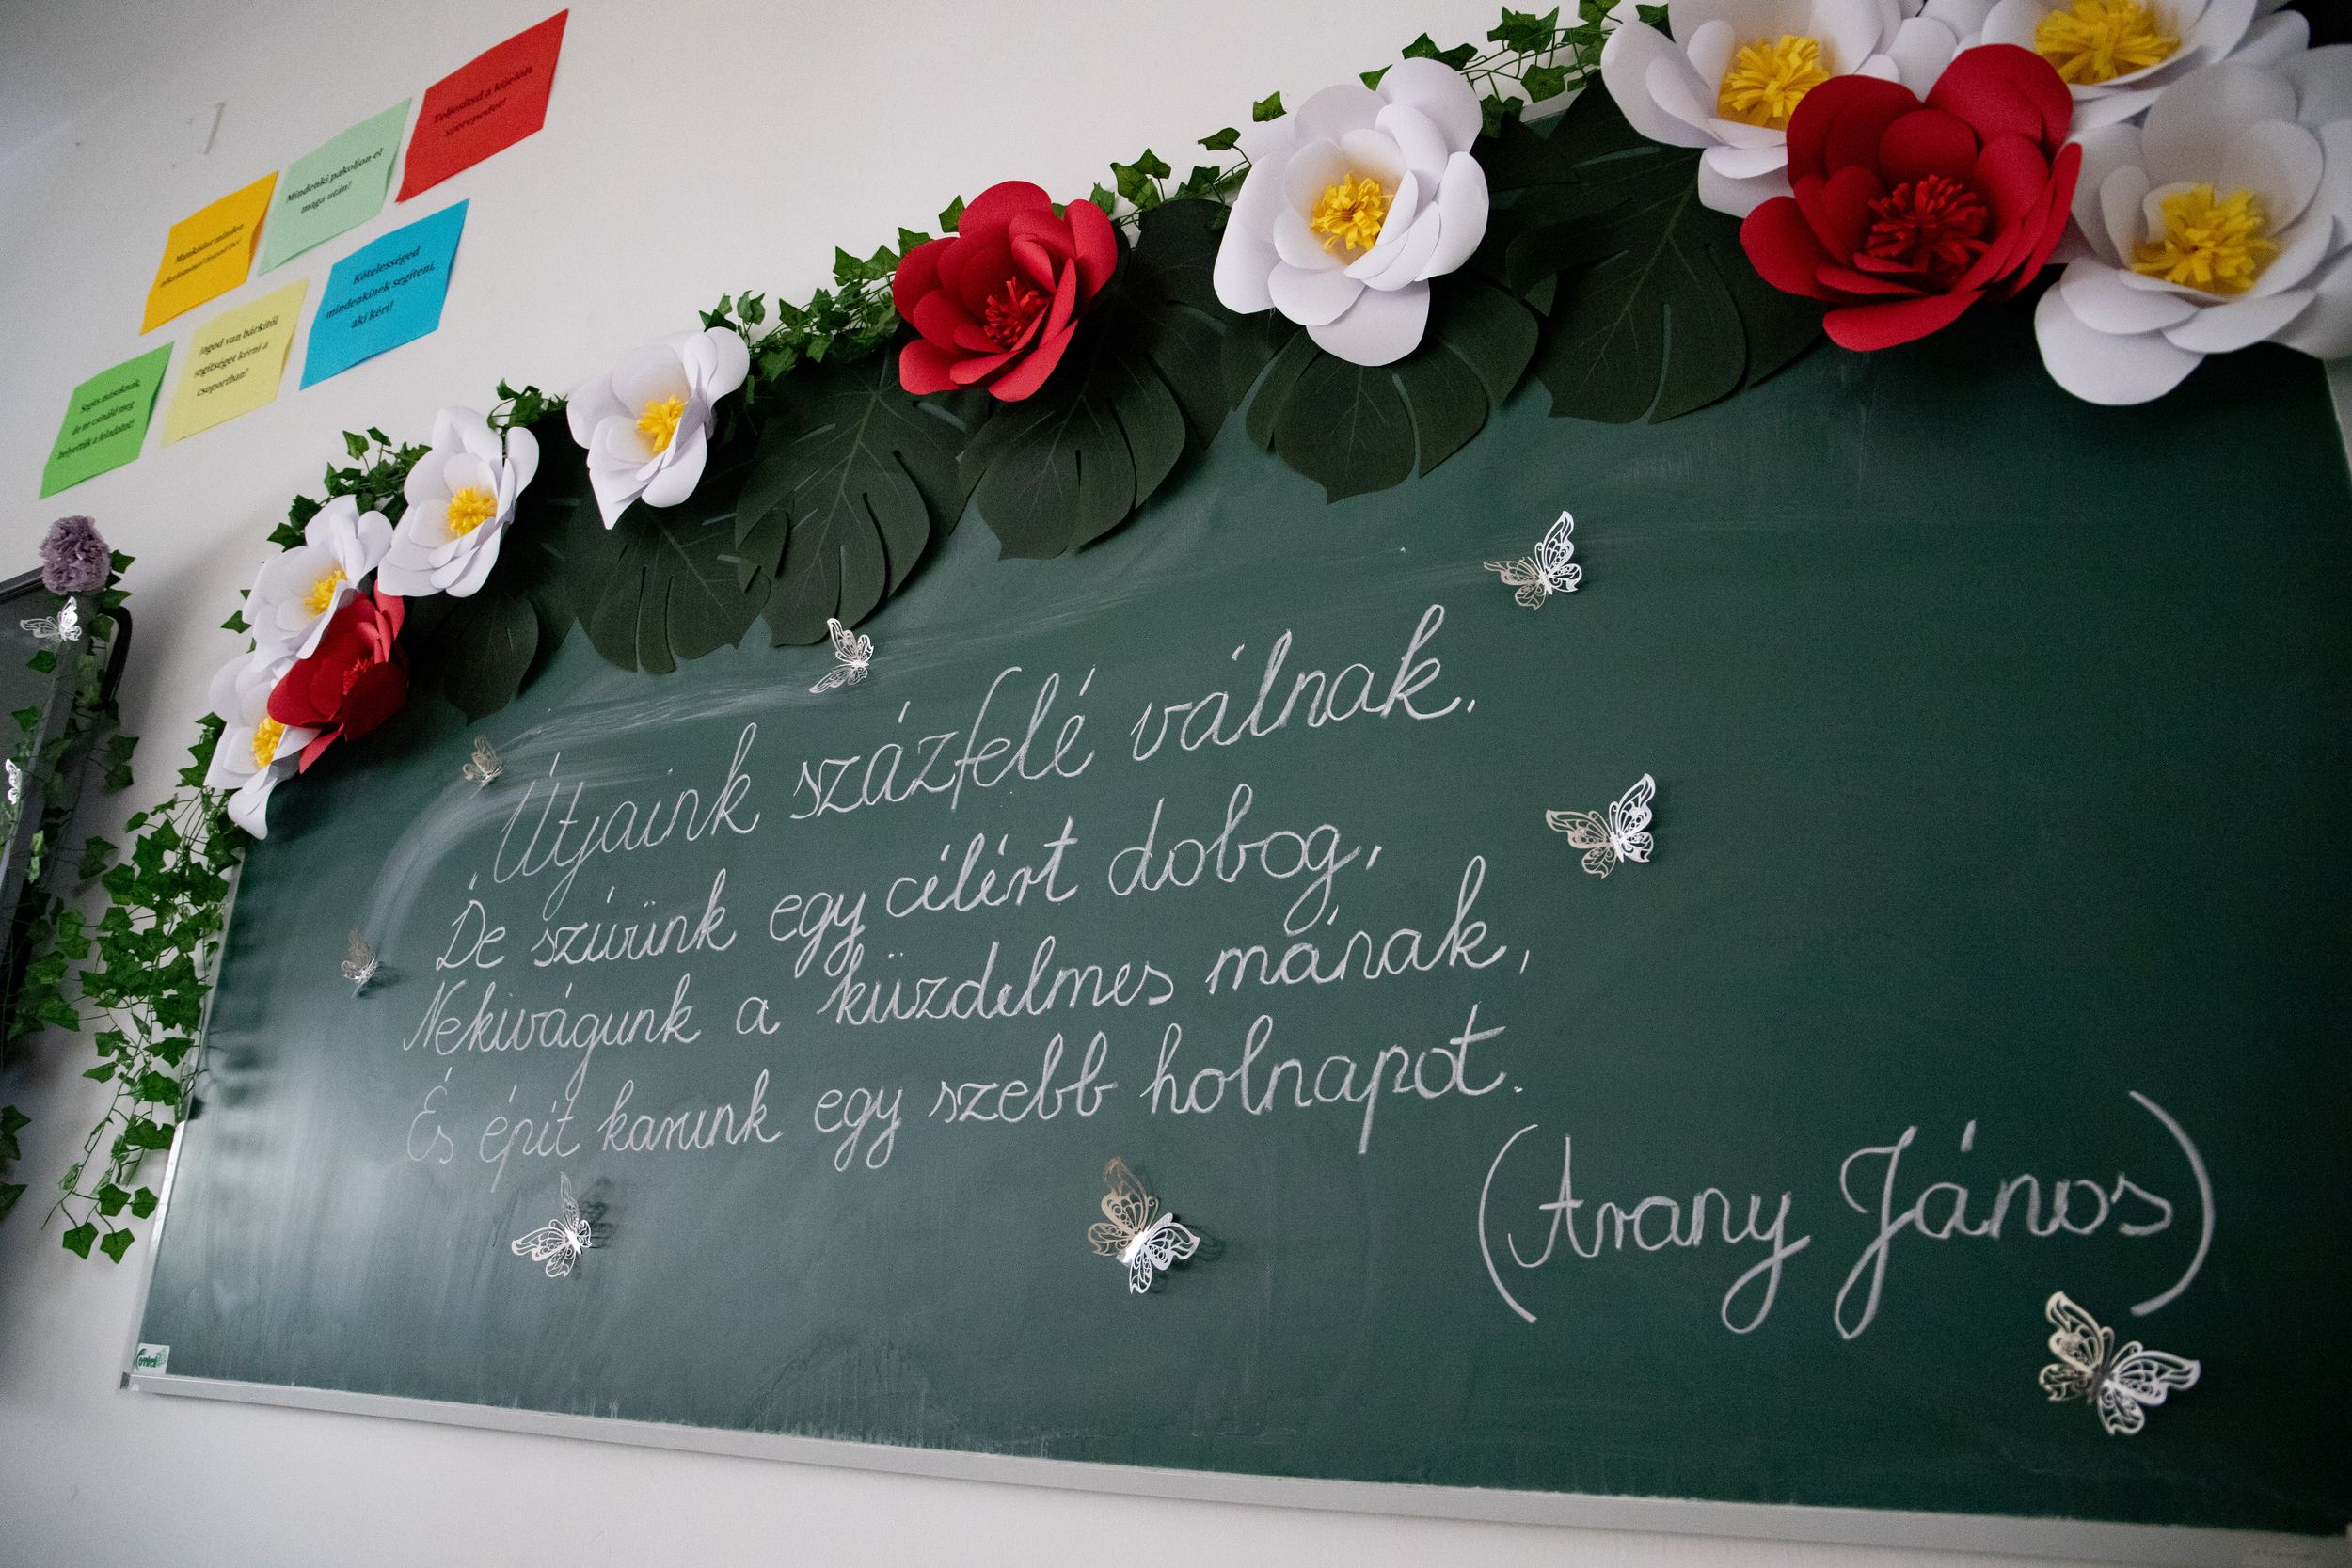 Teljesítsd a kijelölt
szerepedet!
Mindenki pakoljon el
maga után!
minden
Kötelességed
mindenkinek segíteni,
aki kéri!
Jogod van bárkitől
segítséget kérni a
csoportban!
Segíts másoknak,
de ne csináld meg
helyettük a feladatot!
Útjaink százfelé válnak.
De szívünk egy célért dobog,
Nekivágunk a küzdelmes mának,
És épít karunk egy szebb holnapot.
(Arany János)